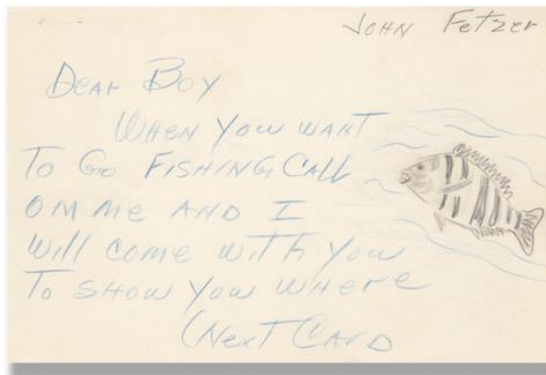 JOHN Fetzer
Dear Boy
WHEN YOU WANT
To Go FISHING CALL
OM Me AND I
Will come WITH YOU
To SHOW YOU WHERE
(NexT CARD